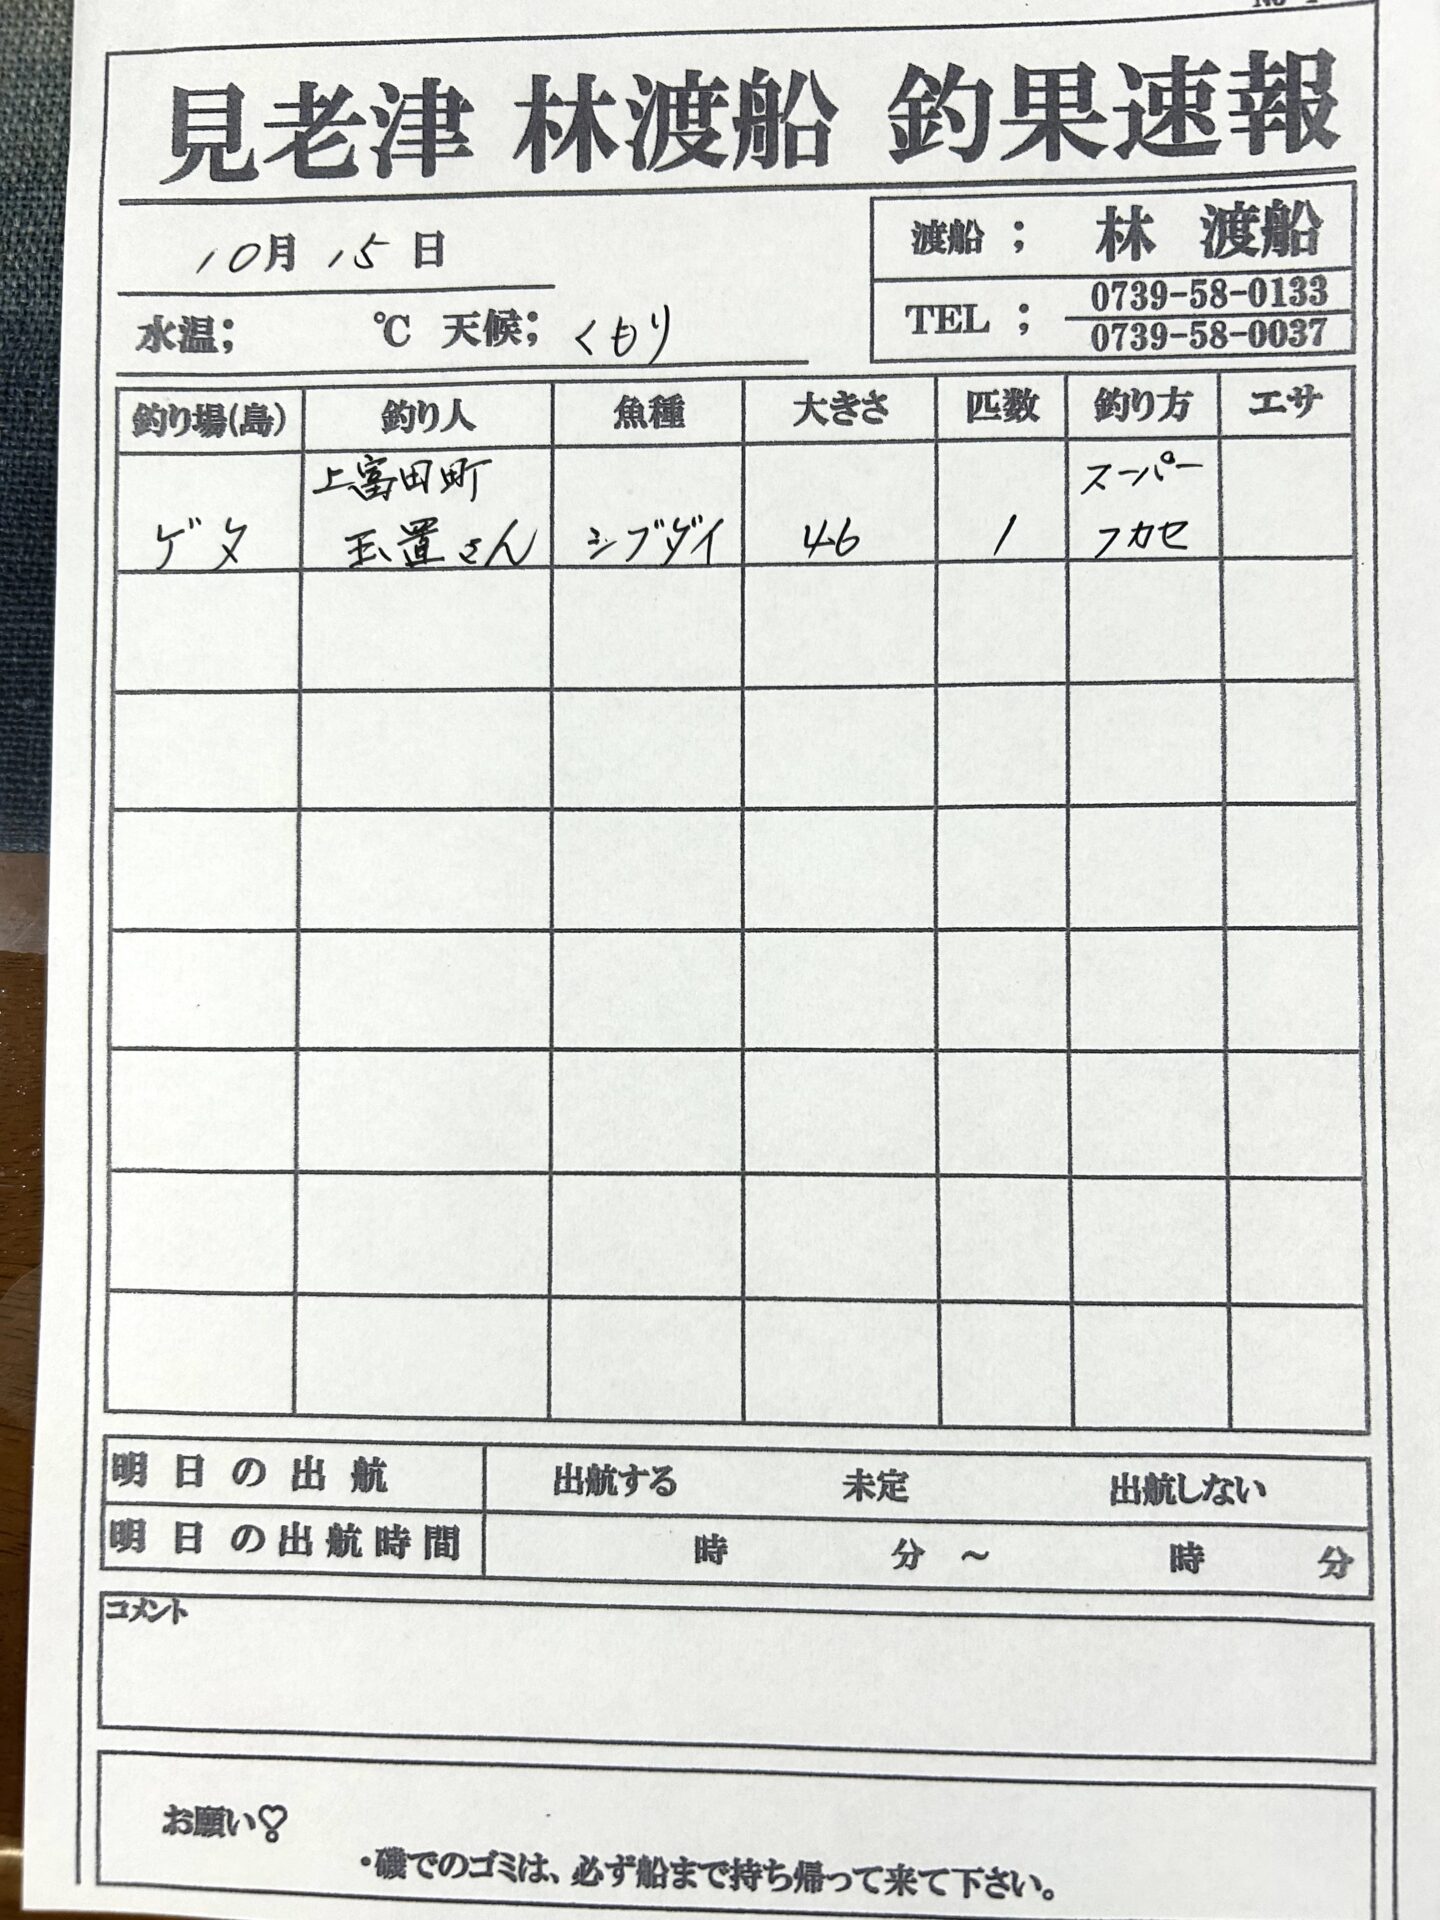 見老津 林渡船 釣果速報
10月 15日
渡船 ; 林 渡船
TEL ; 0739-58-0133
0739-58-0037
水温; ℃ 天候; くもり
釣り場(島) 釣り人 魚種 大きさ 匹数 釣り方 エサ
上富田町 スーパー
ゲタ 玉置さん シブダイ 46 1 フカセ
明日の出航 出航する 未定 出航しない
明日の出航時間 時 分 ~ 時 分
コメント
お願い♡
・磯でのゴミは、必ず船まで持ち帰って来て下さい。